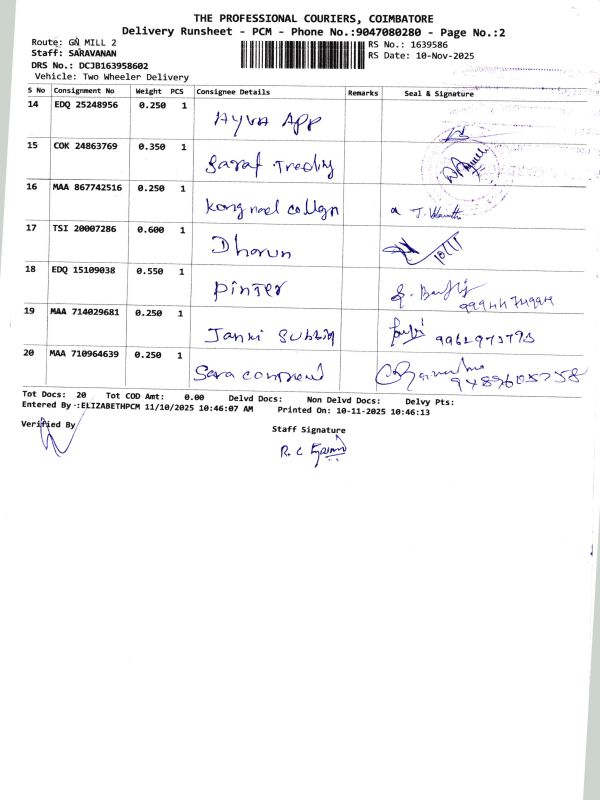 THE PROFESSIONAL COURIERS, COIMBATORE
Delivery Runsheet - PCM - Phone No.:9047080280 - Page No.:2
Route: GN MILL 2
Staff: SARAVANAN
DRS No.: DCJB163958602
Vehicle: Two Wheeler Delivery
RS No.: 1639586
RS Date: 10-Nov-2025
S No Consignment No Weight PCS Consignee Details Remarks Seal & Signature
14 EDQ 25248956 0.250 1 Ayva App
15 COK 24863769 0.350 1 Saraf Trading
16 MAA 867742516 0.250 1
17 TSI 20007286 0.600 1 Dharun 10/11
18 EDQ 15109038 0.550 1 Pinter
19 MAA 714029681 0.250 1 Janki
20 MAA 710964639 0.250 1 Sara
Tot Docs: 20 Tot COD Amt: 0.00 Delvd Docs: Non Delvd Docs: Delvy Pts:
Entered By -:ELIZABETHPCM 11/10/2025 10:46:07 AM Printed On: 10-11-2025 10:46:13
Verified By
Staff Signature